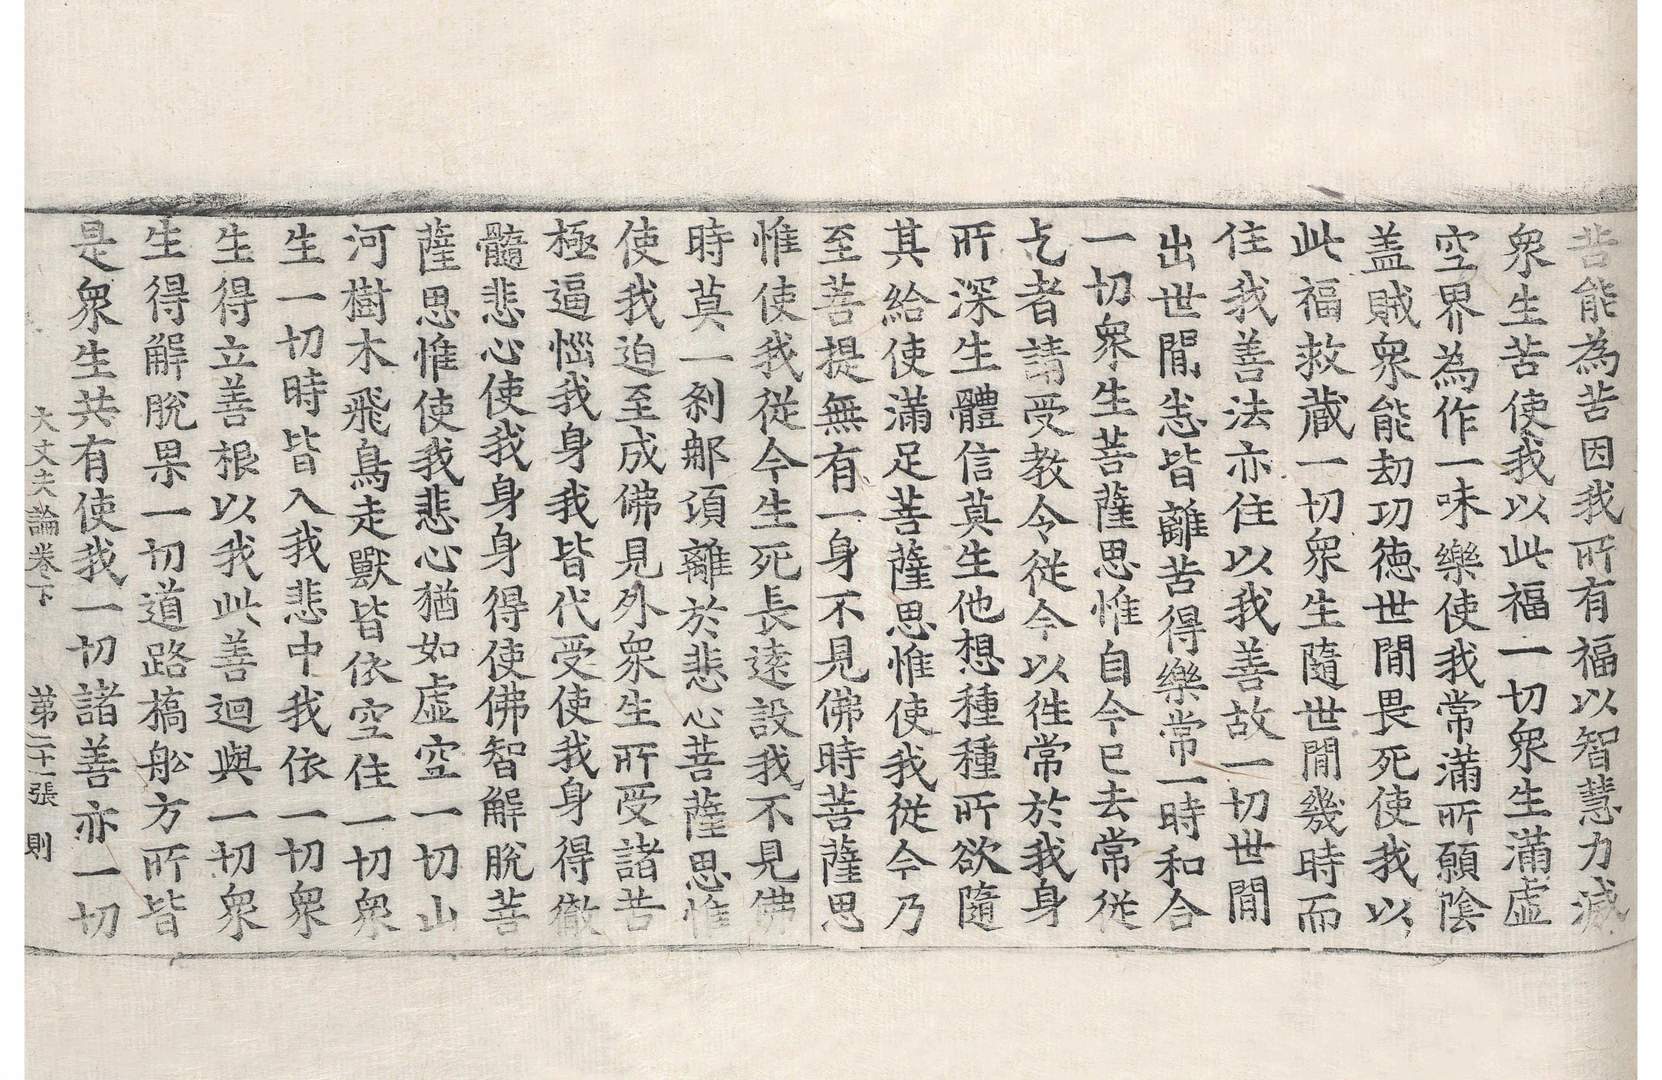 苦能為苦因我所有福以智慧力滅
衆生苦使我以此福一切衆生滿虛
空界為作一味樂使我常滿所願陰
盖賊衆能劫功德世閒畏死使我以
此福救蔵一切衆生隨世閒幾時而
住我善法亦住以我善故一切世閒
出世閒悉皆離苦得樂常一時和合
一切衆生菩薩思惟自今已去常從
乞者請受教令從今以往常於我身
所深生體信莫生他想種種所欲隨
其給使滿足菩薩思惟使我從今乃
至菩提無有一身不見佛時菩薩思
惟使我從今生死長遠設我不見佛
時莫一刹那須離於悲心菩薩思惟
使我迫至成佛見外衆生所受諸苦
極逼惱我身我皆代受使我身得徹
髓悲心使我身身得使佛智解脫菩
薩思惟使我悲心猶如虛空一切山
河樹木飛鳥走獸皆依空住一切衆
生一切時皆入我悲中我依一切衆
生得立善根以我此善迴與一切衆
生得解脫果一切道路橋舩方所皆
是衆生共有使我一切諸善亦一切
大丈夫論卷下 第二十一張 則